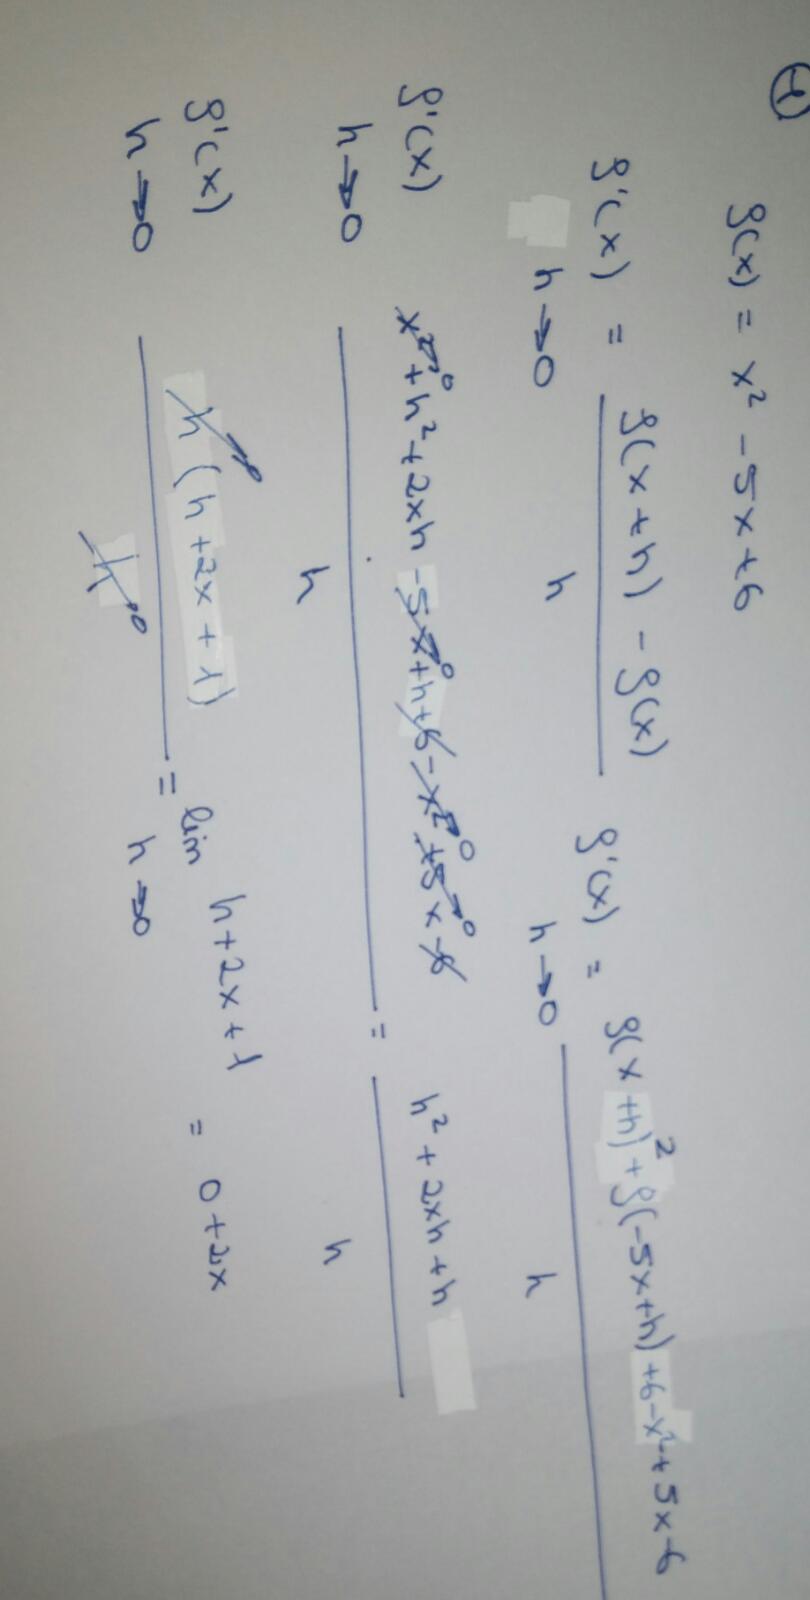 ④
f(x) = x² - 5x + 6
f'(x) = f(x+h) - f(x) / h
h→0
f'(x) = f(x+h)² + f(-5x+h) + 6 - x² + 5x - 6 / h
h→0
f'(x) x² + h² + 2xh - 5x + h + 6 - x² + 5x - 6 / h = h² + 2xh + h / h
h→0
f'(x) h(h + 2x + 1) / h = lim h + 2x + 1 = 0 + 2x
h→0 h→0